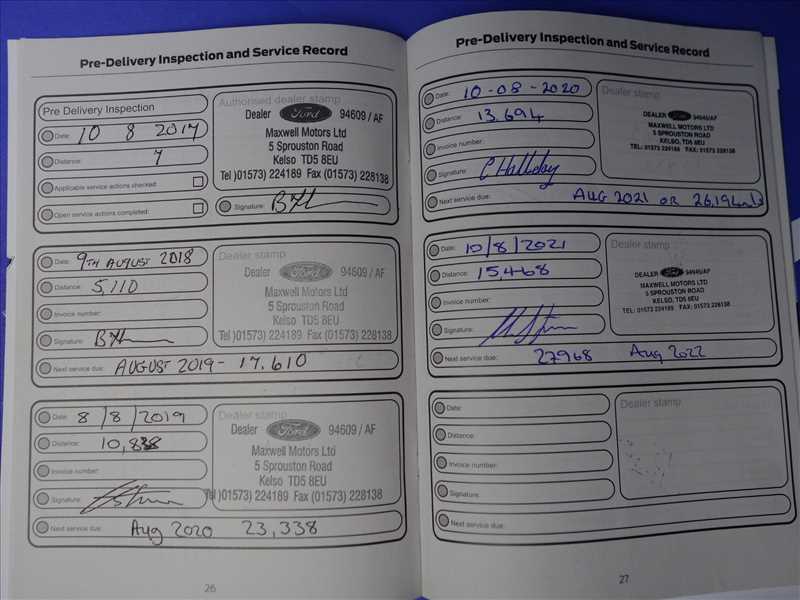 Pre-Delivery Inspection and Service Record
Pre Delivery Inspection
Date: 10 8 2017
Distance: 7
Applicable service actions checked
Open service actions completed:
Authorised dealer stamp
Dealer Ford 94609 / AF
Maxwell Motors Ltd
5 Sprouston Road
Kelso TD5 8EU
Tel )01573) 224189 Fax (01573) 228138
Signature:
Date: 9TH AUGUST 2018
Distance: 5,110
Invoice number:
Signature:
Next service due: AUGUST 2019 - 17.610
Dealer stamp
Dealer Ford 94609 / AF
Maxwell Motors Ltd
5 Sprouston Road
Kelso TD5 8EU
Tel )01573) 224189 Fax (01573) 228138
Date: 8/8/2019
Distance: 10,838
Invoice number:
Signature:
Next service due: Aug 2020 23,338
Dealer stamp
Dealer Ford 94609 / AF
Maxwell Motors Ltd
5 Sprouston Road
Kelso TD5 8EU
Tel )01573) 224189 Fax (01573) 228138
26
Pre-Delivery Inspection and Service Record
Date: 10-08-2020
Distance: 13.694
Invoice number:
Signature: C Halliday
Next service due: AUG 2021 OR 26,194mls
Dealer stamp
DEALER Ford 94945/AF
MAXWELL MOTORS LTD
5 SPROUSTON ROAD
KELSO, TD5 8EU
TEL: 01573 224189 FAX: 01573 228138
Date: 10/8/2021
Distance: 15,468
Invoice number:
Signature:
Next service due: 27968 Aug 2022
Dealer stamp
DEALER Ford 94945/AF
MAXWELL MOTORS LTD
5 SPROUSTON ROAD
KELSO, TD5 8EU
TEL: 01573 224189 FAX: 01573 228138
Date:
Distance:
Invoice number:
Signature:
Next service due:
Dealer stamp
27